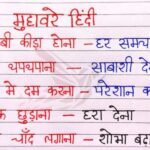 मुहावरे हिंदी
बी कीड़ा होना – हर समय
थपथपाना – साबाशी दे
मे दम करना – परेशान क
छुड़ाना – हरा देना
चाँद लगाना – शोभा बढ़